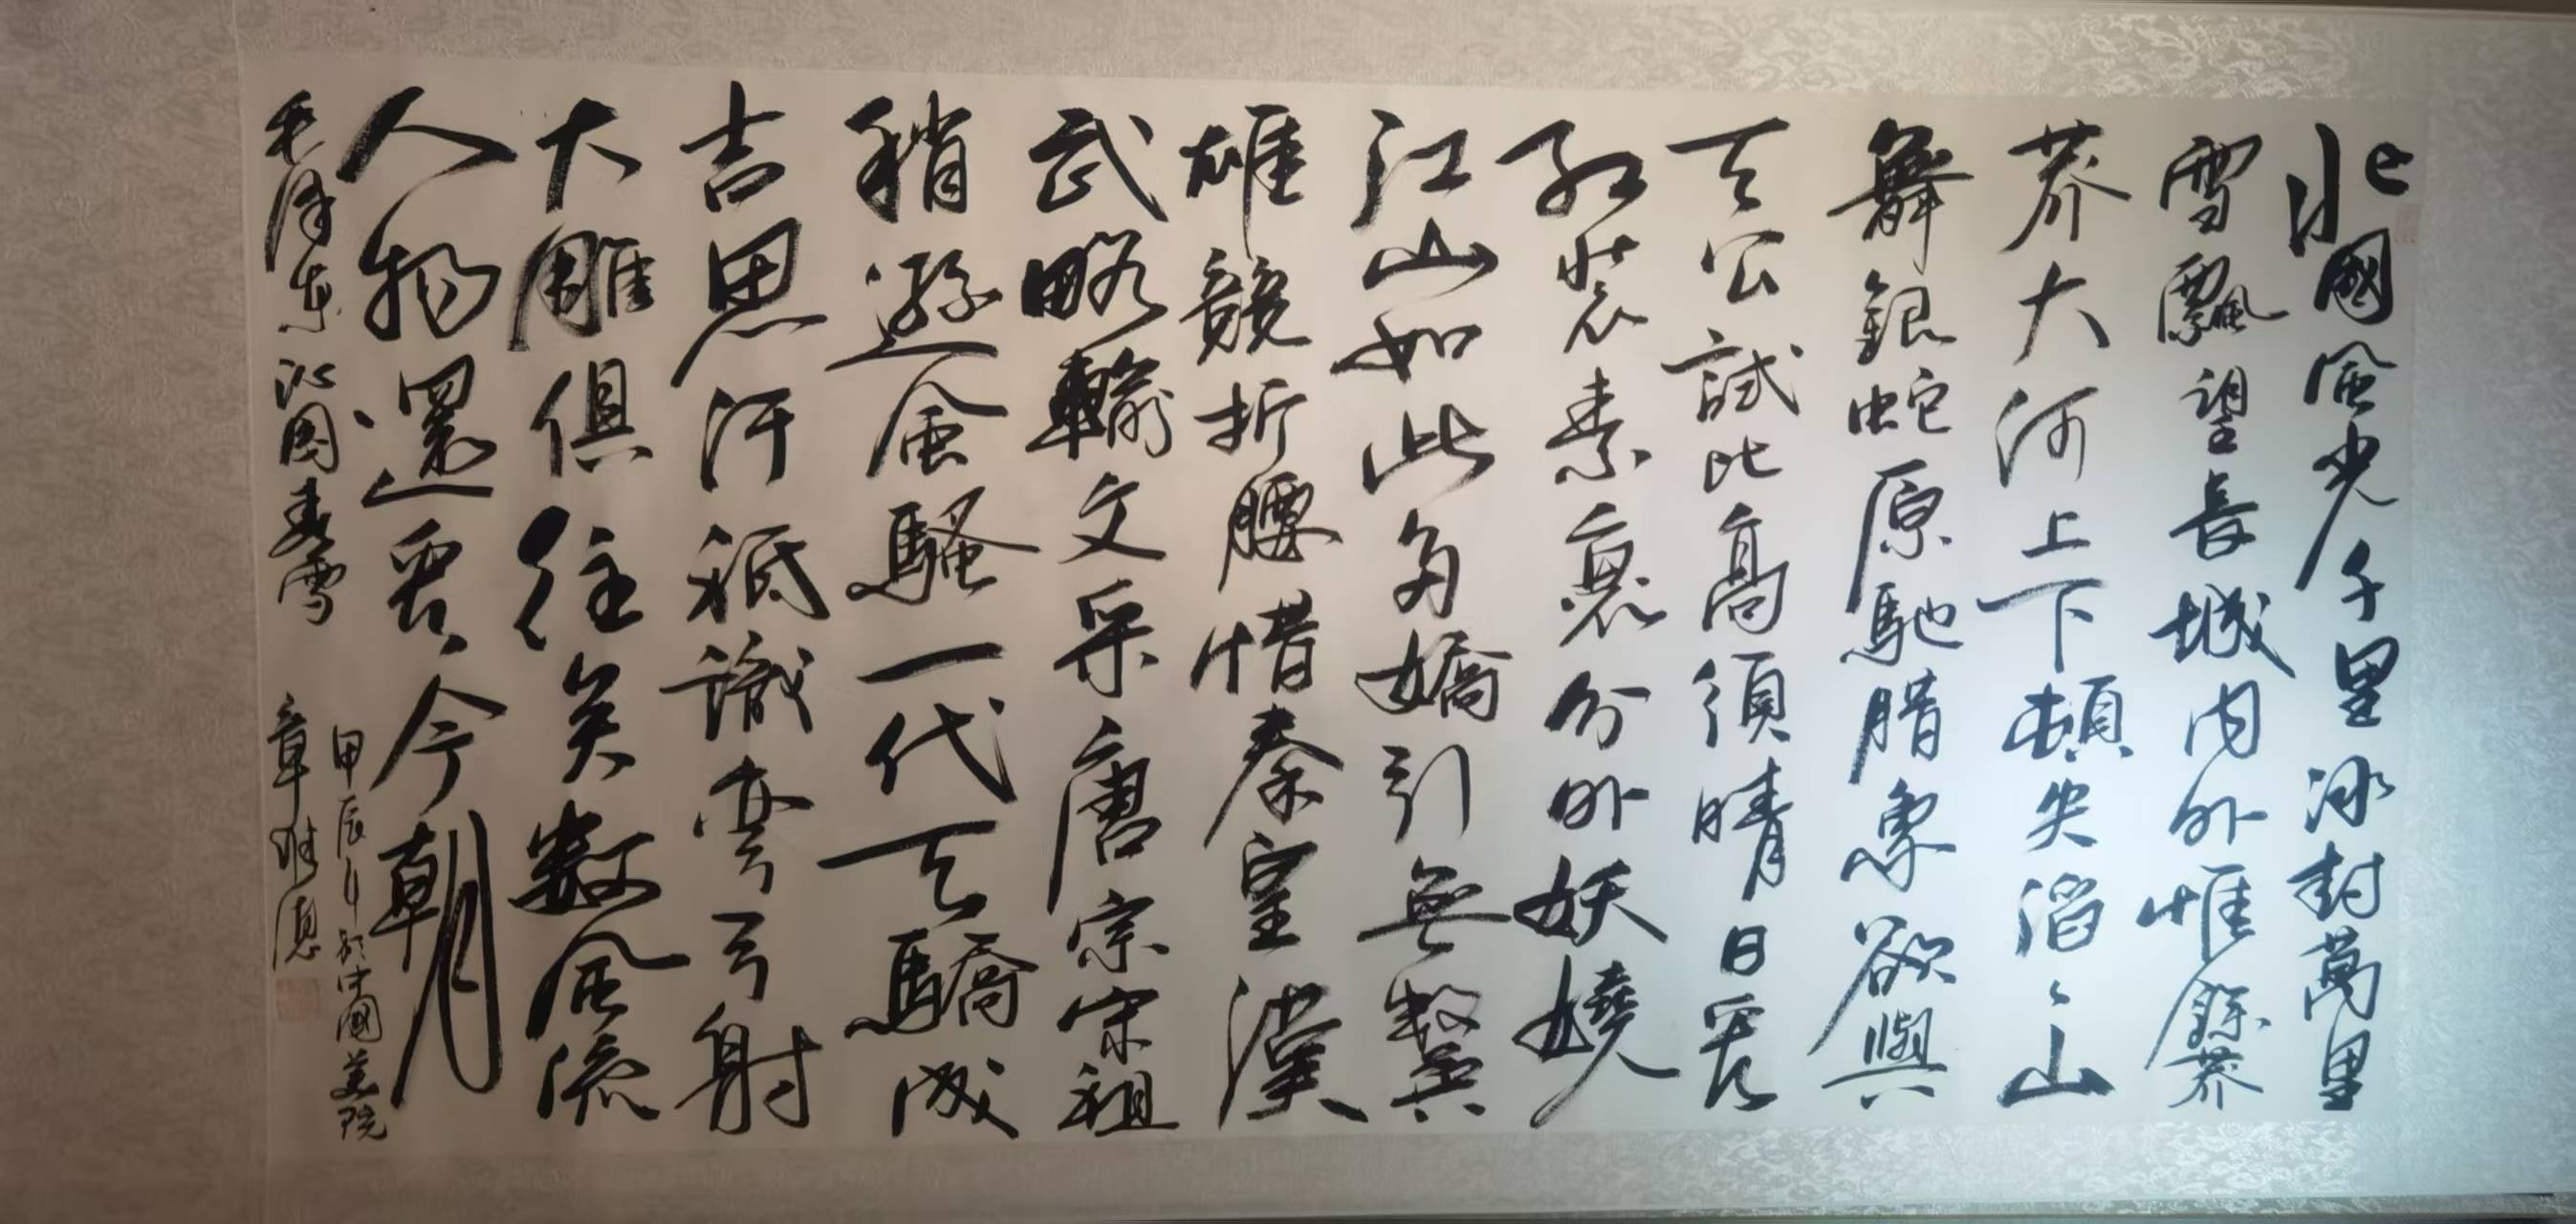 北國風光千里冰封萬里
雪飄望長城內外惟餘莽
莽大河上下頓失滔〻山
舞銀蛇原馳腊象欲與
天公試比高須晴日看
紅裝素裹分外妖嬈
江山如此多嬌引無數英
雄競折腰惜秦皇漢
武略輸文采唐宗宋祖
稍遜風騷一代天驕成
吉思汗祇識彎弓射
大雕俱往矣數風流
人物還看今朝
毛澤東沁園春雪
甲辰年於中國美院
章